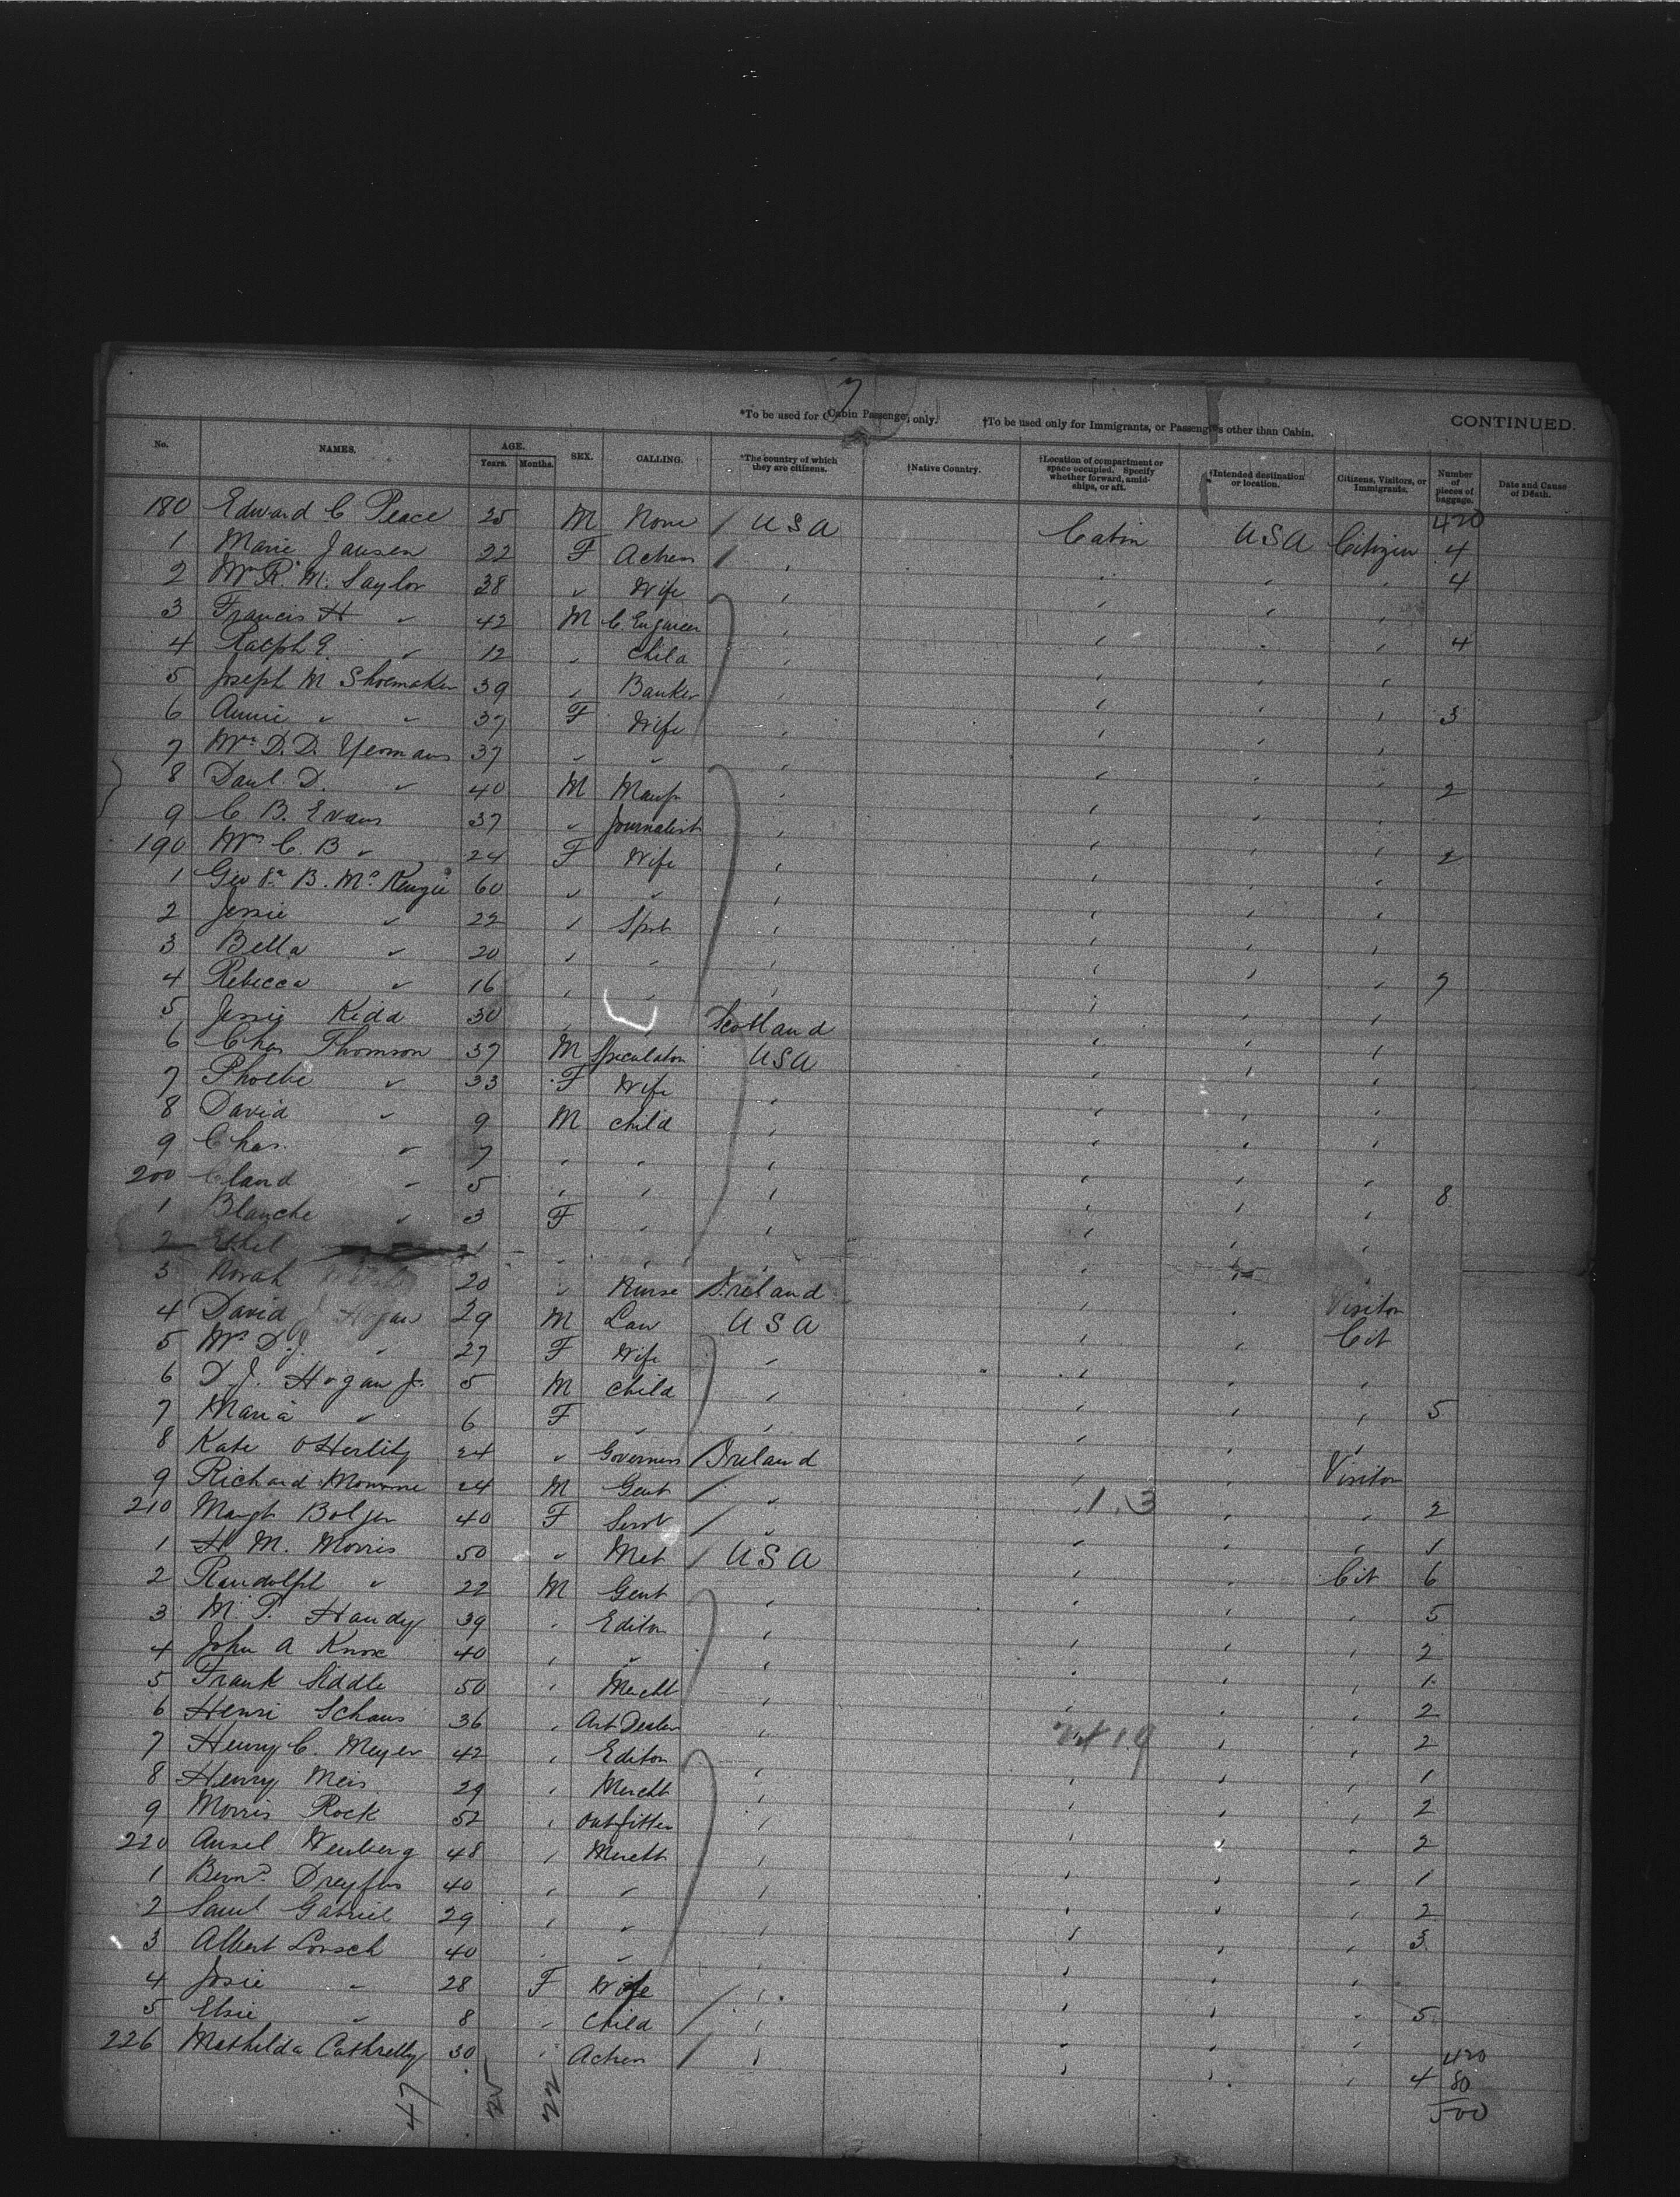 7
*To be used for Cabin Passenger only. †To be used only for Immigrants, or Passengers other than Cabin. CONTINUED.
No. NAMES. AGE. Years. Months. SEX. CALLING. *The country of which they are citizens. †Native Country. †Location of compartment or space occupied. Specify whether forward, amidships, or aft. †Intended destination or location. Citizens, Visitors, or Immigrants. Number of pieces of baggage. Date and Cause of Death.
420
180 Edward C Peace 25 M None / USA Cabin USA Citizen 4
1 Marie Jansen 22 F Actress / , , , , 4
2 Mrs R. M. Saylor 38 " Wife , , , ,
3 Francis H " 42 M C. Engineer , , , , 4
4 Ralph E. " 12 , child , , , ,
5 Joseph M Shoemaker 39 , Banker , , , ,
6 Annie " " 37 F Wife , , , , 3
7 Mrs D. D. Yeomans 37 " " , , , ,
8 Danl. D. " 40 M Manfr , , , , 2
9 C B. Evans 37 " Journalist , , , ,
190 Mrs C. B " 24 F Wife , , , , 2
1 Geo B. McKenzie 60 " " , , , ,
2 Jessie " 22 , Spst , , , ,
3 Bella " 20 , , , , , ,
4 Rebecca " 16 , , , , , , 7
5 Jessie Kidd 30 , , Scotland , , ,
6 Chas Thomson 37 M Speculator USA , , ,
7 Phoebe " 33 F Wife , , , ,
8 David " 9 M child , , , ,
9 Chas. " 7 , , , , , ,
200 Claud " 5 , , , , , , 8
1 Blanche " 3 F , , , , ,
2 Ethel 1 , , , , , ,
3 Norah 20 " Nurse Ireland , , Visitor
4 David J Hogan 29 M Law USA , , Cit
5 Mrs D. J. " 27 F Wife , , , ,
6 D. J. Hogan Jr. 5 M child , , , , 5
7 Maria " 6 F , , , , ,
8 Kate O'Herlihy 24 " Governess / Ireland , , Visitor
9 Richard 24 M Gent / " , , , 2
1.3
210 Margt Bolger 40 F Servt / " , , , 1
1 H. M. Morris 50 " Mat / USA , , Cit 6
2 Randolph " 22 M Gent , , , , 5
3 M. P. Handy 39 , Editor , , , , 2
4 John A Knox 40 , " , , , , 1
5 Frank Siddle 50 , Mercht , , , , 2
6 Henri Schaus 36 , Art Dealer , , , , 2
7 Henry C. Meyer 42 , Editor , , , , 1
8 Henry Meis 29 , Mercht , , , , 2
9 Morris Rock 52 , Outfitter , , , , 2
220 Ansel Weinberg 48 , Mercht , , , , 1
1 Bernd Dreyfus 40 , " , , , , 2
2 Saml Gabriel 29 , " , , , , 3
3 Albert Lorsch 40 , " , , , ,
4 Josie " 28 F Wife , , , ,
5 Elsie " 8 " Child / , , , , 5
226 Mathilda Cottrelly 30 , Actress / , , , , 4
420
80
500
47 25 22